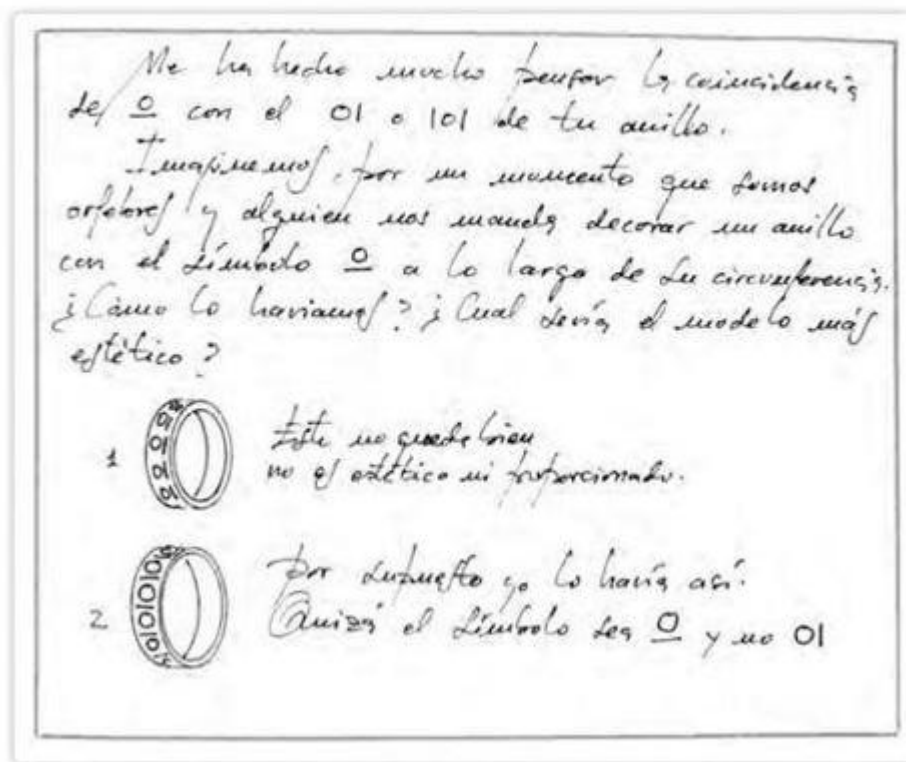 Me ha hecho mucho pensar la coincidencia
de O̲ con el 01 o 101 de tu anillo.
Imaginemos, por un momento que somos
orfebres y alguien nos manda decorar un anillo
con el símbolo O̲ a lo largo de su circunferencia.
¿Cómo lo hariamos? ¿Cual sería el modelo más
estético?
1 Este no queda bien
no es estético ni proporcionado.
2 Por supuesto yo lo haría así.
Quizá el símbolo sea O̲ y no 01